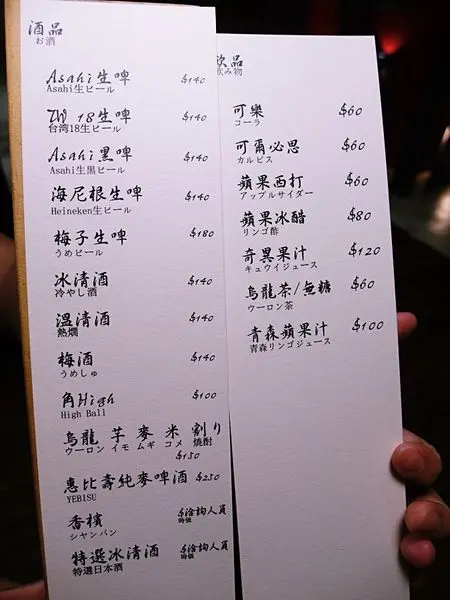 酒品
お酒
Asahi生啤 $140
Asahi生ビール
TW 18生啤 $140
台湾18生ビール
Asahi黑啤 $140
Asahi生黒ビール
海尼根生啤 $140
Heineken生ビール
梅子生啤 $180
うめビール
冰清酒 $140
冷やし酒
溫清酒 $140
熱燗
梅酒 $140
うめしゅ
角High $100
High Ball
烏龍 芋 麥 米 割り
ウーロン イモ ムギ コメ 焼酎
$150
惠比壽純麥啤酒 $250
YEBISU
香檳 $洽詢人員
シャンパン 時価
特選冰清酒 $洽詢人員
特選日本酒 時価
飲品
飲み物
可樂 $60
コーラ
可爾必思 $60
カルピス
蘋果西打 $60
アップルサイダー
蘋果冰醋 $80
リンゴ酢
奇異果汁 $120
キュウイジュース
烏龍茶/無糖 $60
ウーロン茶
青森蘋果汁 $100
青森リンゴジュース